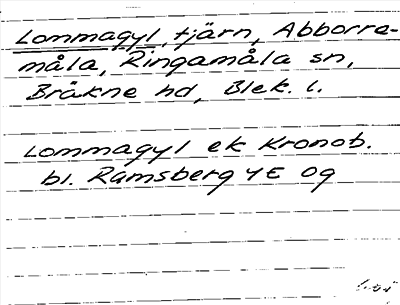 Lommagyl, tjärn, Abborre-
måla, Ringamåla sn,
Bräkne hd, Blek. l.
Lommagyl ek Kronob.
bl. Ramsberg 4E 0g